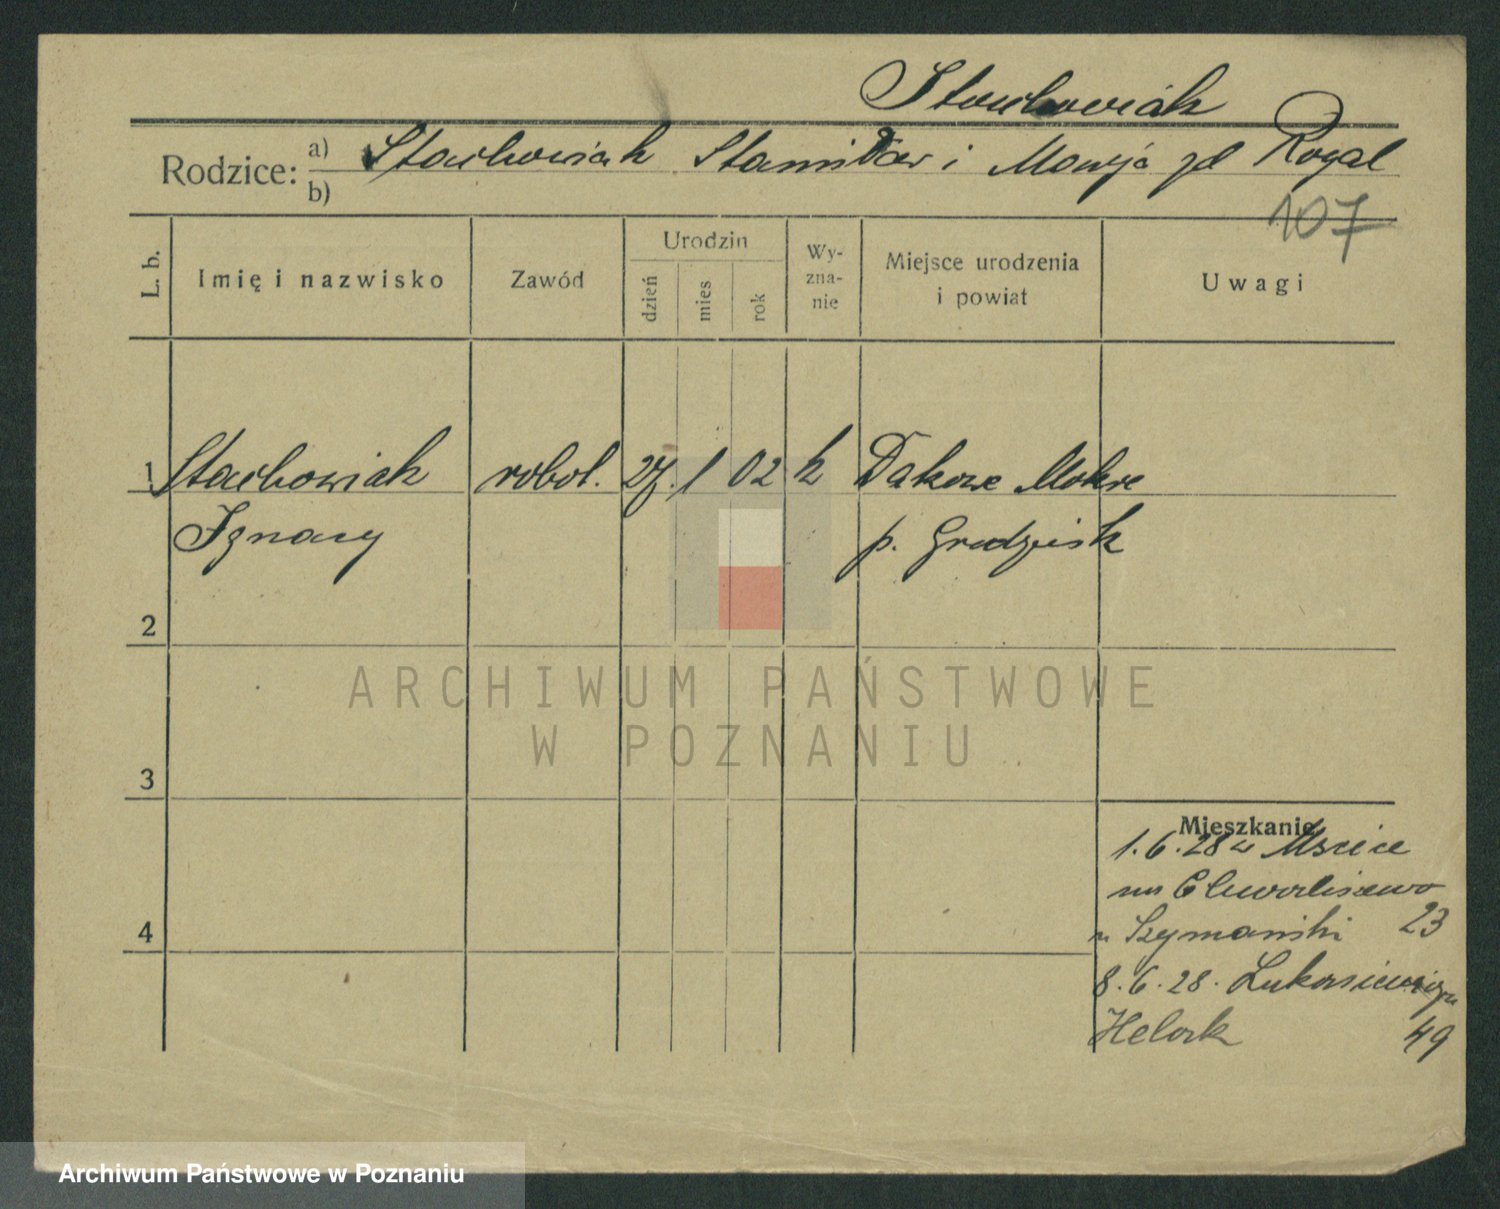 Stachowiak
Rodzice: a) Stachowiak Stanisław i Marja zd Rogal
b)
107
L. b.
Imię i nazwisko
Zawód
Urodzin
dzień
mies
rok
Wy-
zna-
nie
Miejsce urodzenia
i powiat
Uwagi
1 Stachowiak robot. 27. 1 02 k Dakowe Mokre
Ignacy p. Grodzisk
2
3
4
Mieszkanie
1.6.28 z
Chwaliszewo
Szymański 23
8.6.28.
49
ARCHIWUM PAŃSTWOWE
W POZNANIU
Archiwum Państwowe w Poznaniu